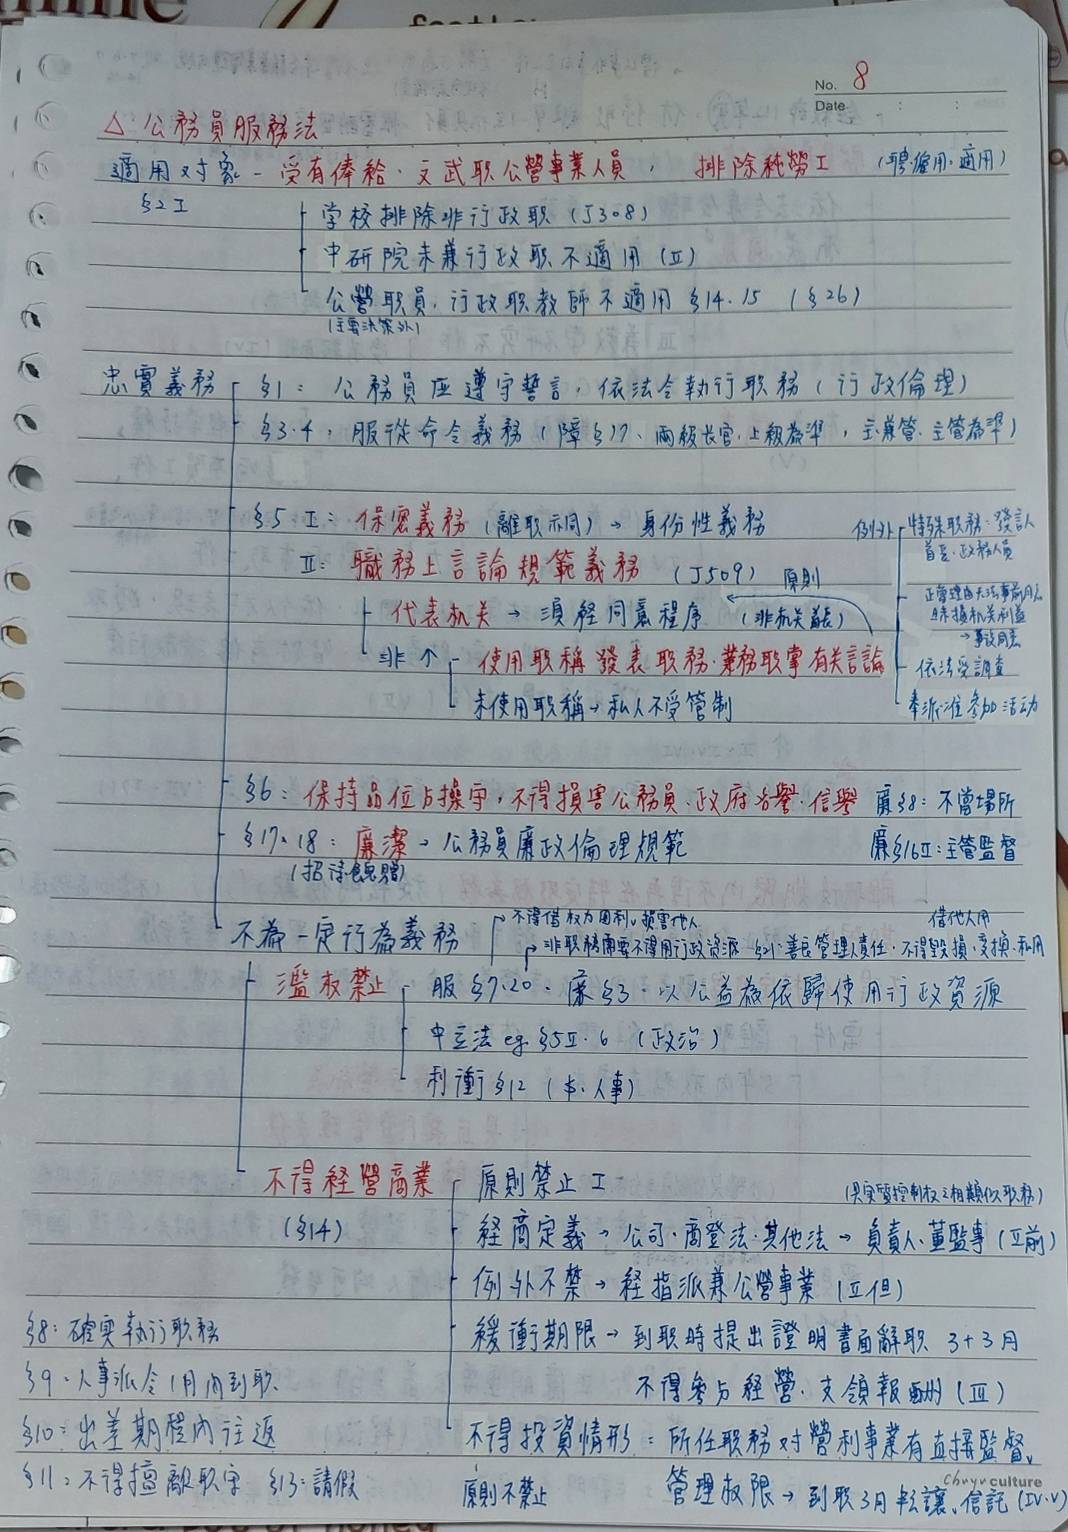 No. 8
Date
△公務員服務法
適用对象－受有俸給．文武职公營事業人員， 排除純勞工 （聘．僱用．適用）
§2I
学校排除非行政职（J308）
中研院未兼行政职不適用（II）
公營职員，行政职教師不適用§14.15（§26）
（主要決策外）
忠實義務 §1： 公務員应遵守誓言，依法令執行职務（行政倫理）
§3.4，服從命令義務（障§17、兩級长官、上級為準，主．兼管、主管為準）
§5 I：保密義務（離职亦同）→身份性義務
例外 特殊职務：發言人
首長．政務人員
II：職務上言論規範義務（J509） 原則
代表机关→須経同意程序（非机关首長）
→事後同意
非↑ 使用职稱發表职務．業務职掌有关言論
依法受調查
未使用职稱→私人不受管制
奉派准參加活动
§6：保持品位与操守，不得損害公務員、政府名譽．信譽 廉§8：不當場所
§17.18：廉潔→公務員廉政倫理規範 廉§16II：主管監督
不為一定行為義務
不得借权力圖利、損害他人
借他人用
非职務需要不得用行政資源 §21：善良管理人責任．不得毀損、变換、私用
濫权禁止 服§7.20．廉§3．以公益為依歸使用行政資源
中立法 eg. §5II．6（政治）
利衝§12（本．人事）
不得経營商業 原則禁止I
（§14）
（具实質控制权之相類似职務）
経商定義→公司．商登法．其他法→負責人．董監事（II前）
例外不禁→経指派兼公營事業（II但）
§8：確实執行职務
緩衝期限→到职時提出證明書面辭职 3+3月
§9．人事派令1月內到职．
不得參与経營．支領報酬（III）
§10：出差期程內往返
不得投資情形：所任职務对營利事業有直接監督、
§11：不得擅離职守 §13：請假
原則不禁止
管理权限→到职3月転讓、信託（IV．V）
culture